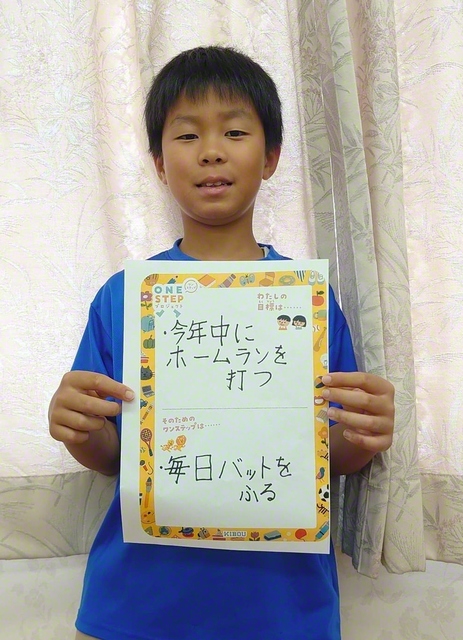 ONE
STEP
プロジェクト
わたしの
目標は……
・今年中に
ホームランを
打つ
そのための
ワンステップは……
・毎日バットを
ふる
KIBOU